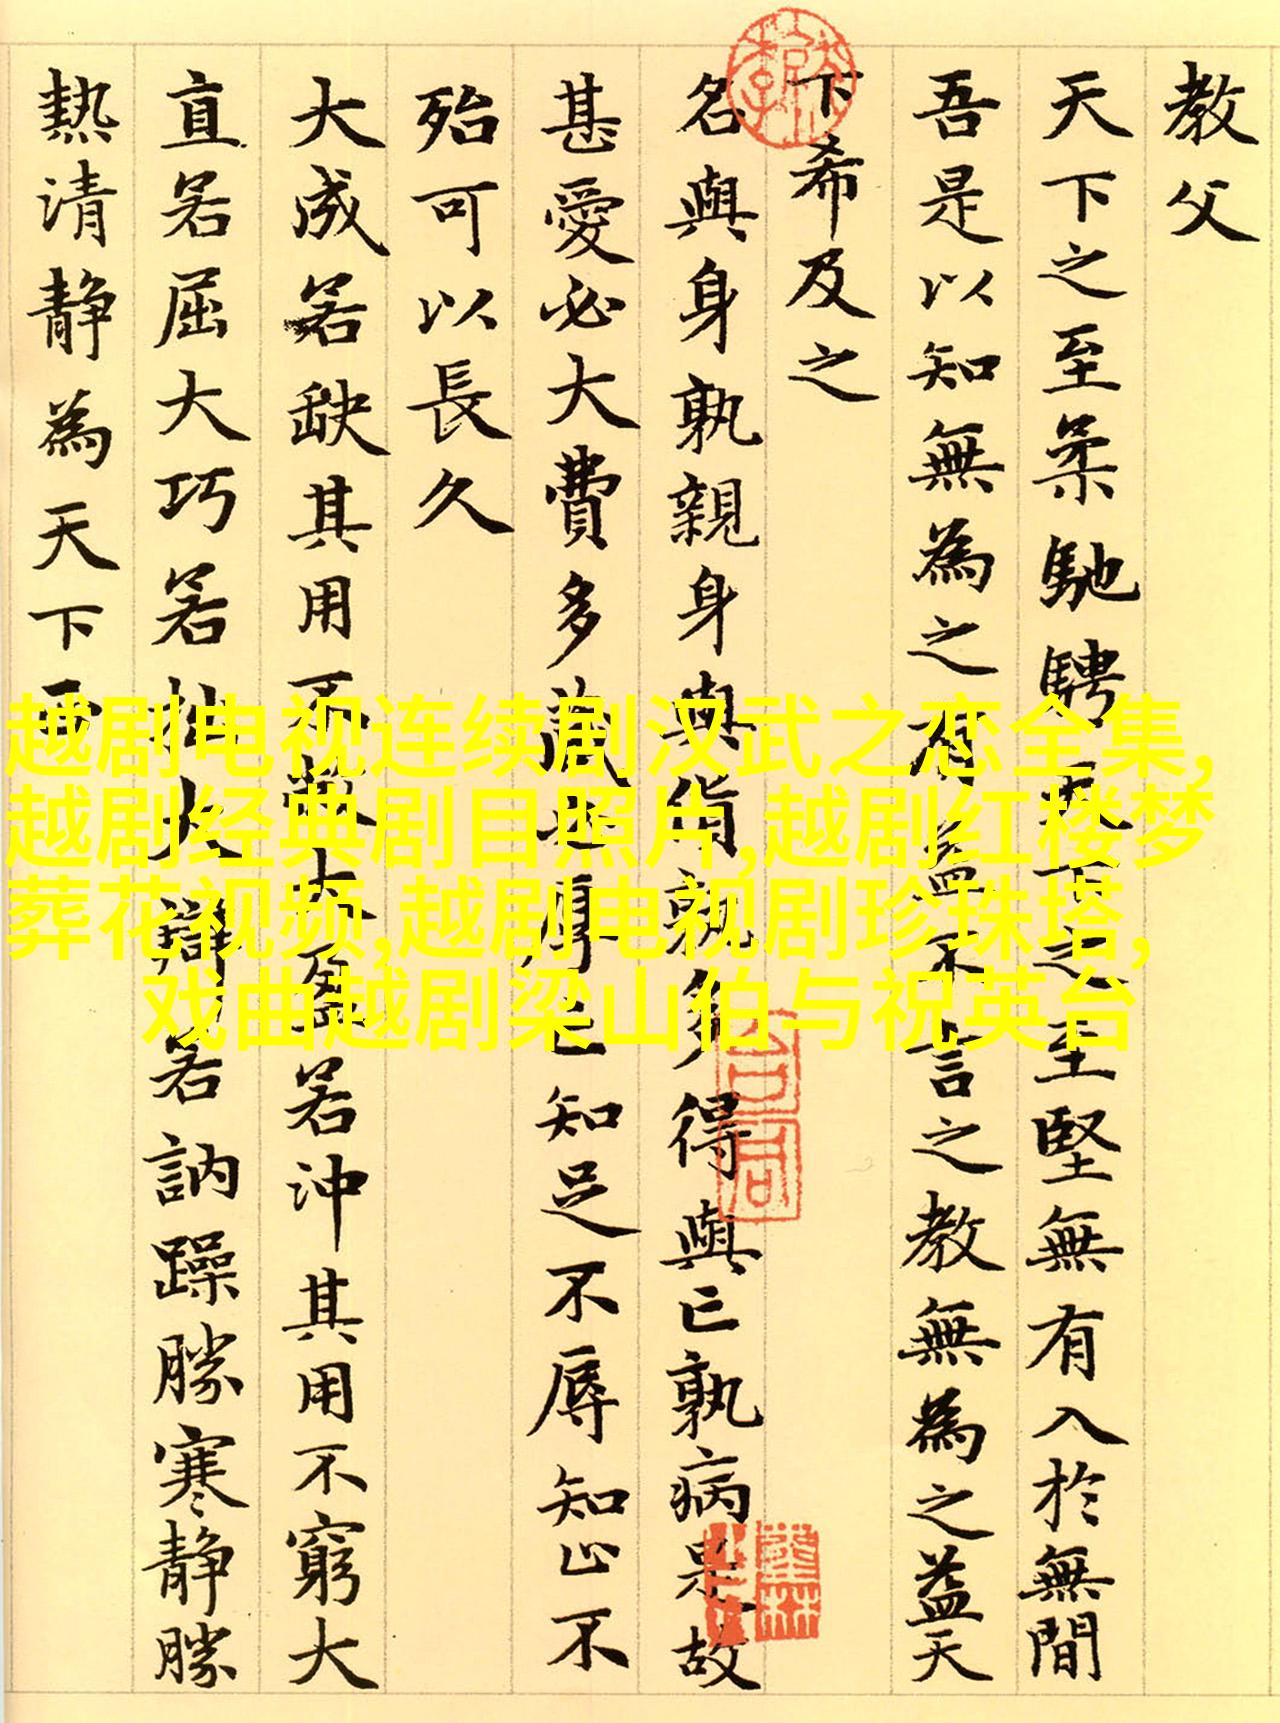 教父
天下之至柔馳騁天下之至堅無有入於無間
吾是以知無為之有益不言之教無為之益天
下希及之
名與身孰親身與貨孰多得與亡孰病是故
甚愛必大費多藏必厚亡知足不辱知止不
殆可以長久
大成若缺其用不弊大盈若沖其用不窮大
直若屈大巧若拙大辯若訥躁勝寒靜勝
熱清靜為天下正
越剧电视连续剧汉武之恋全集,
越剧经典剧目照片,越剧红楼梦
葬花视频,越剧电视剧珍珠塔,
戏曲越剧梁山伯与祝英台